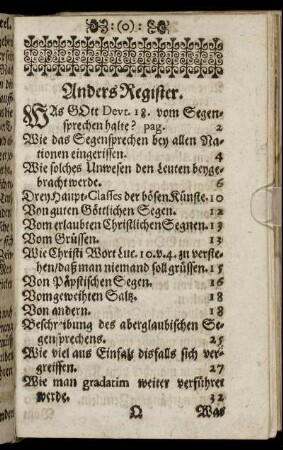 :(o):
Anders Register.
WAs GOtt Devt. 18. vom Segen-
sprechen halte? pag. 2
Wie das Segensprechen bey allen Na-
tionen eingerissen. 4
Wie solches Unwesen den Leuten beyge-
bracht werde. 6
Drey Haupt-Classes der bösen Künste. 10
Von guten Göttlichen Segen. 12
Vom erlaubten Christlichen Segnen. 13
Vom Grüssen. 13
Wie Christi Wort Luc. 10. v. 4. zu verste-
hen/daß man niemand soll grüssen. 15
Von Päpstischen Segen. 16
Vom geweihten Saltz. 18
Von andern. 18
Beschreibung des aberglaubischen Se-
gensprechens. 25
Wie viel aus Einfalt disfalls sich ver-
greiffen. 27
Wie man gradatim weiter verführet
werde. 32
Q Was